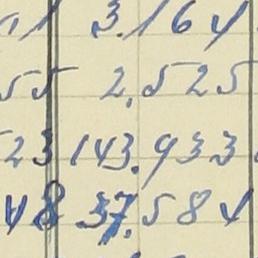 3.164
55 2.525
23 143.933
48 37.584